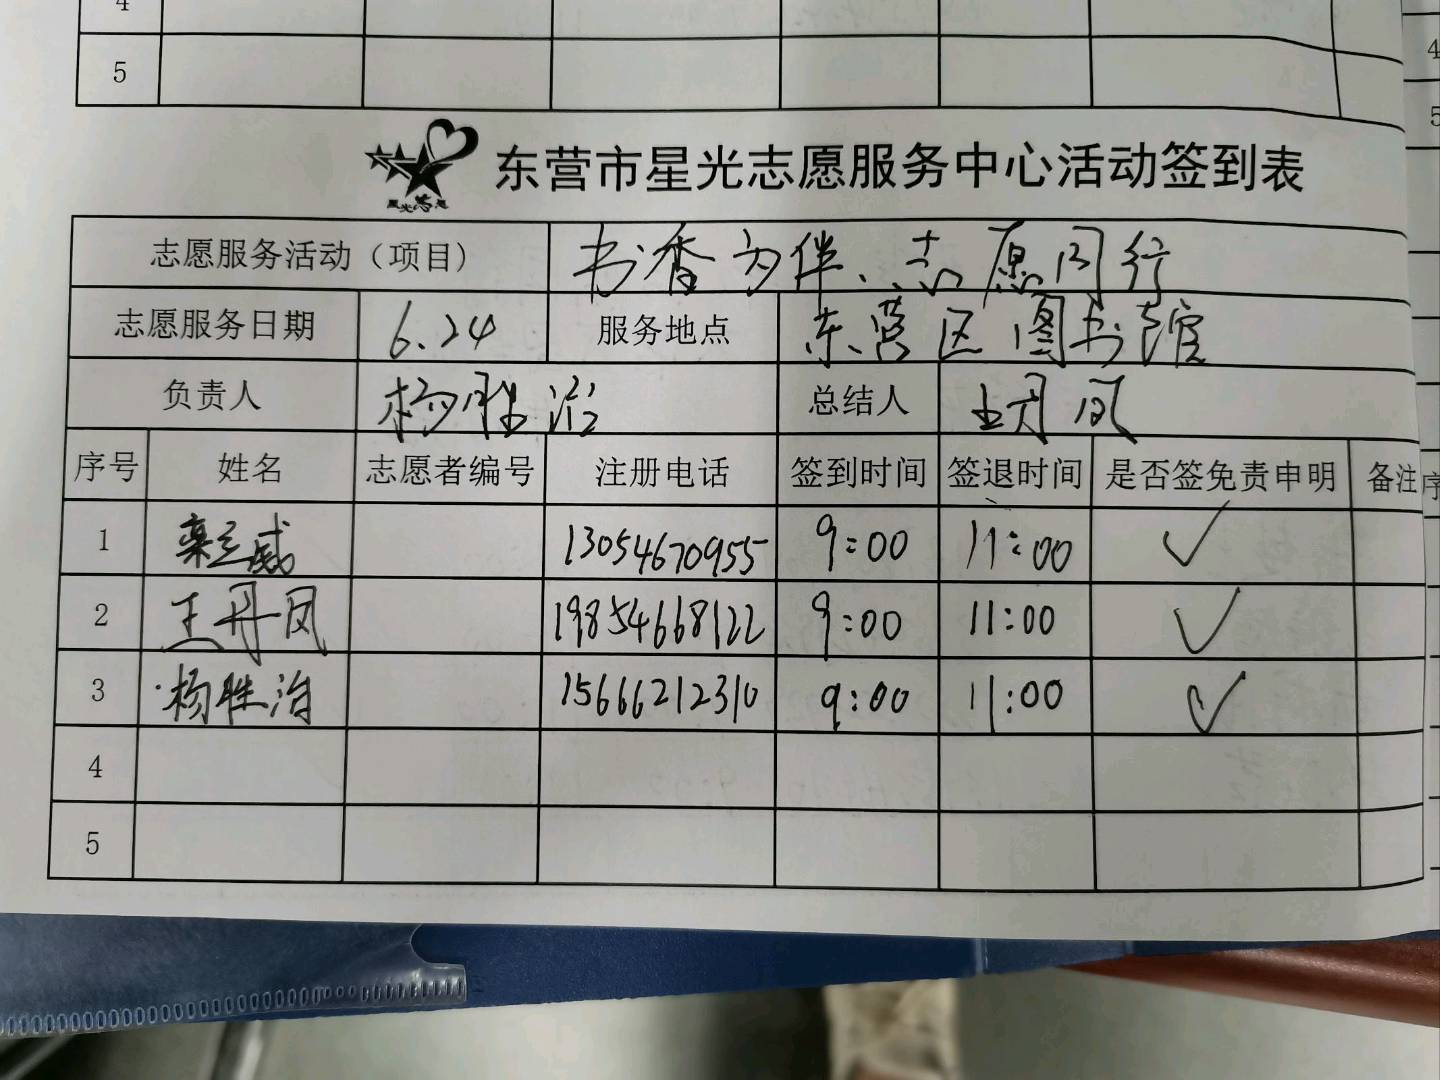 4
5
4
5
东营市星光志愿服务中心活动签到表
星光志愿
志愿服务活动（项目） 书香为伴、志愿同行
志愿服务日期 6.24 服务地点 东营区图书馆
负责人 杨胜治 总结人 王丹凤
序号 姓名 志愿者编号 注册电话 签到时间 签退时间 是否签免责申明 备注 序
1 栾立威 13054670955 9:00 11:00 ✓
2 王丹凤 19854668122 9:00 11:00 ✓
3 杨胜治 15666212310 9:00 11:00 ✓
4
5